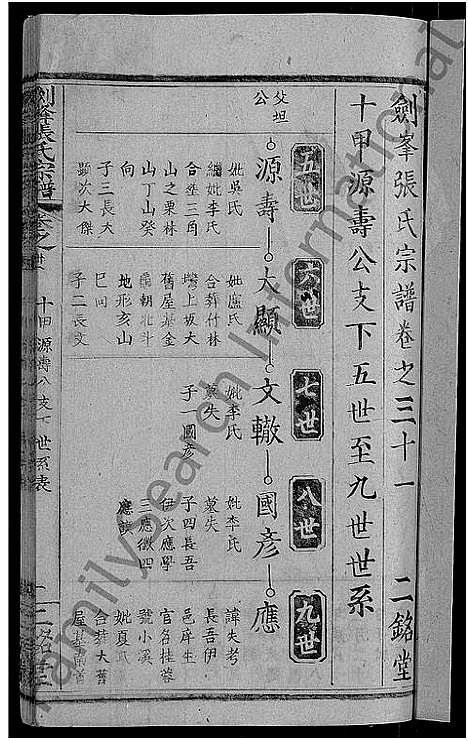 劍峯張氏宗譜卷之三十一 二銘堂
十甲源壽公支下五世至九世世系
五世
六世
七世
八世
九世
父坦公
源壽 大顯 文轍 國彥 應
妣吳氏
繼妣李氏
合葬三角
山之栗林
山丁山癸
向
子三長大
顯次大傑
妣龐氏
合葬竹林
塆上坂大
舊屋基金
龜朝北斗
地形亥山
巳向
子二長文
妣李氏
墓失
子一國彥
妣李氏
墓失
子四長吾
伊次應學
三應徵四
應
諱失考
長吾伊
邑庠生
官名桂蓉
號小溪
妣夏氏
合葬大舊
屋
劍峯張氏宗譜 卷之卅一 十甲源壽公支下世系表 一 二銘堂
FamilySearch International